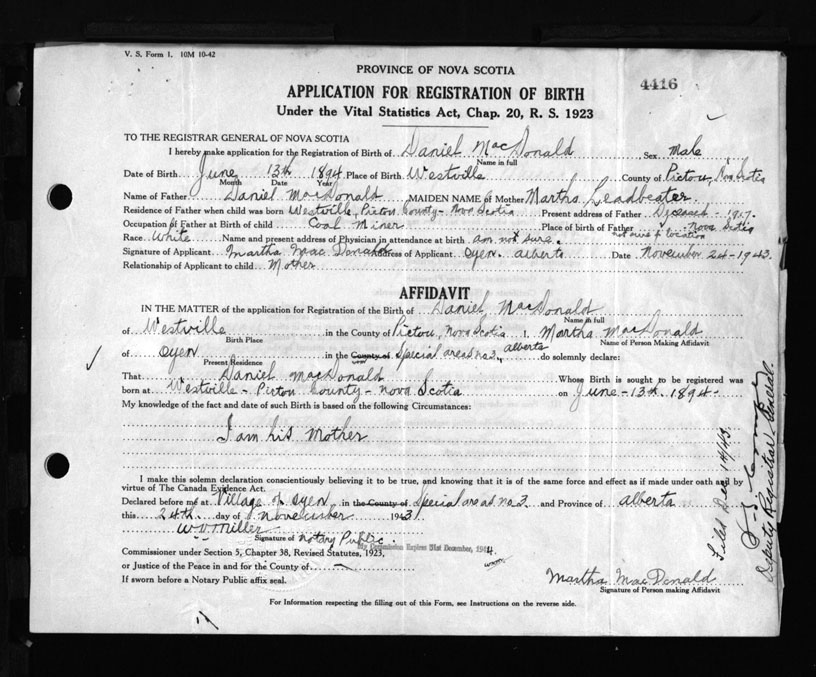 V. S. Form 1. 10M 10-42
PROVINCE OF NOVA SCOTIA
4416
APPLICATION FOR REGISTRATION OF BIRTH
Under the Vital Statistics Act, Chap. 20, R. S. 1923
TO THE REGISTRAR GENERAL OF NOVA SCOTIA
I hereby make application for the Registration of Birth of Daniel MacDonald Sex male
Name in full
Date of Birth June 13th 1894 Place of Birth Westville County of Pictou, Nova Scotia
Month Date Year
Name of Father Daniel MacDonald MAIDEN NAME of Mother Martha Leadbeater
Residence of Father when child was born Westville, Pictou County - Nova Scotia Present address of Father Deceased - 1917.
Occupation of Father at Birth of child Coal Miner Place of birth of Father Nova Scotia
Race White Name and present address of Physician in attendance at birth am not sure. of location
Signature of Applicant Martha MacDonald Address of Applicant Oyen. alberta Date November 24-1943.
Relationship of Applicant to child Mother
AFFIDAVIT
IN THE MATTER of the application for Registration of the Birth of Daniel MacDonald
Name in full
of Westville in the County of Pictou, Nova Scotia I, Martha MacDonald
Birth Place Name of Person Making Affidavit
of Oyen in the County of Special areas no 2, alberta do solemnly declare:
Present Residence
That Daniel MacDonald Whose Birth is sought to be registered was
born at Westville - Pictou County - Nova Scotia on June - 13th. 1894.
My knowledge of the fact and date of such Birth is based on the following Circumstances:
I am his Mother
I make this solemn declaration conscientiously believing it to be true, and knowing that it is of the same force and effect as if made under oath and by
virtue of The Canada Evidence Act.
Declared before me at Village of Oyen in the County of Special areas no. 3 and Province of alberta
this 24th day of November 1943
W. V. Miller
Signature of notary Public.
My Commission Expires 31st December, 1944.
Commissioner under Section 5, Chapter 38, Revised Statutes, 1923,
or Justice of the Peace in and for the County of —
If sworn before a Notary Public affix seal.
Martha MacDonald
Signature of Person making Affidavit
For Information respecting the filling out of this Form, see Instructions on the reverse side.
Filed Dec 14/43
Deputy Registrar General.